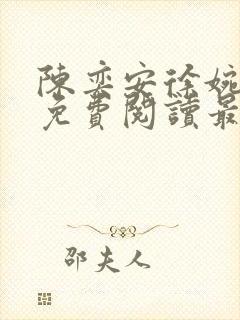 陳奕安徐婉
免費閱讀最
邵夫人